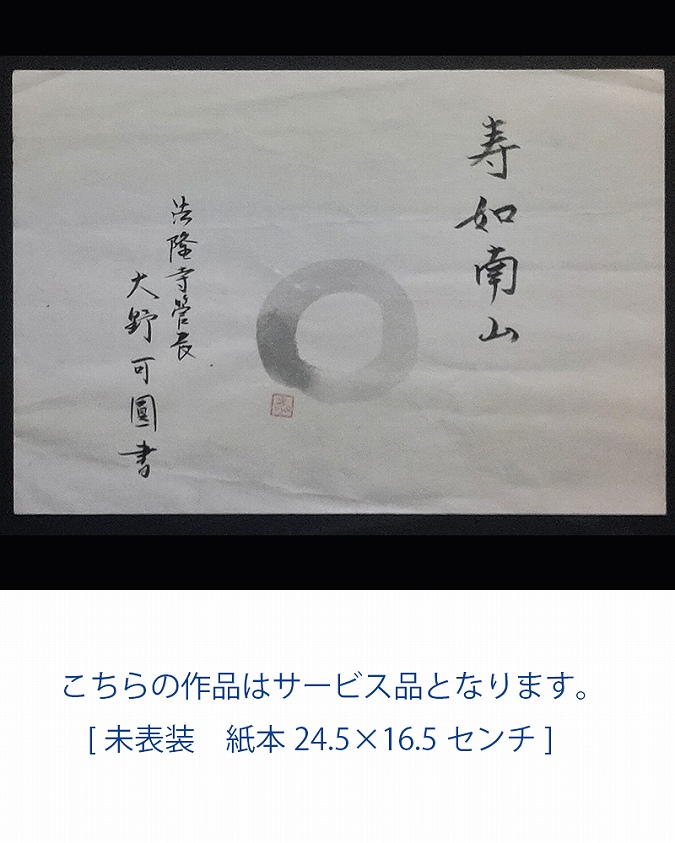 寿如南山
法隆寺管長
大野可圓書
こちらの作品はサービス品となります。
[ 未表装　紙本 24.5×16.5 センチ ]